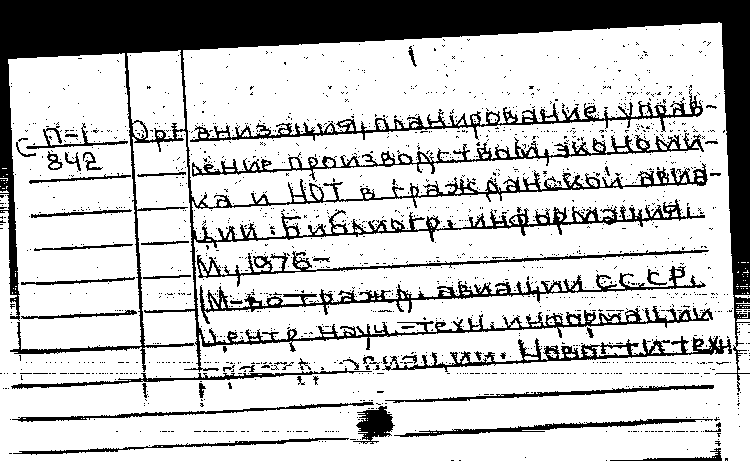 С П-1
842
Организация, планирование, управ-
ление производством, экономи-
ка и НОТ в гражданской авиа-
ции. Библиогр. информация.
М., 1976-
(М-во гражд. авиации СССР.
Центр науч.-техн. информации
гражд. авиации. Новости техн.